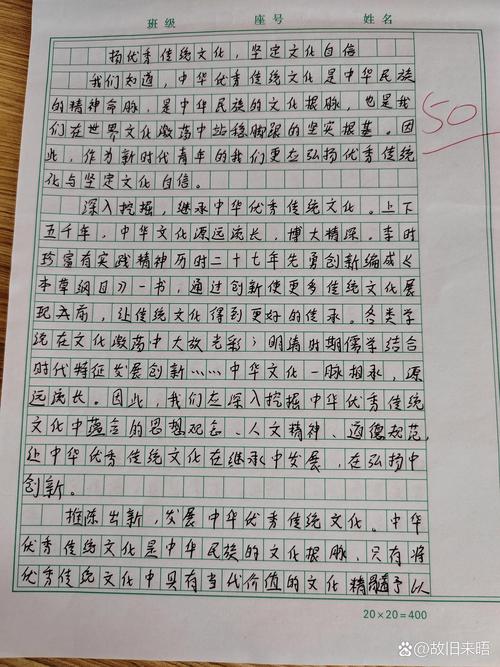 班级 座号 姓名
扬优秀传统文化，坚定文化自信
我们知道，中华优秀传统文化是中华民族
的精神命脉，是中华民族的文化根脉，也是我
们在世界文化激荡中站稳脚跟的坚实根基。因
此，作为新时代青年的我们更应弘扬优秀传统
化与坚定文化自信。
50
深入挖掘，继承中华优秀传统文化。上下
五千年，中华文化源远流长，博大精深。李时
珍富有实践精神历时二十七年先勇创新编成《
本草纲目》一书，通过创新使更多传统文化展
现在前，让传统文化得到更好的传承。各类学
说在文化激荡中大放光彩；明清时期儒学结合
时代特征发展创新……中华文化一脉相承，源
远流长。因此，我们应深入挖掘中华优秀传统
文化中蕴含的思想观念、人文精神、道德规范，
让中华优秀传统文化在继承中发展，在弘扬中
创新。
推陈出新，发展中华优秀传统文化。中华
优秀传统文化是中华民族的文化根脉，只有将
优秀传统文化中具有当代价值的文化精髓予以
20×20=400
百家号/故旧来晤